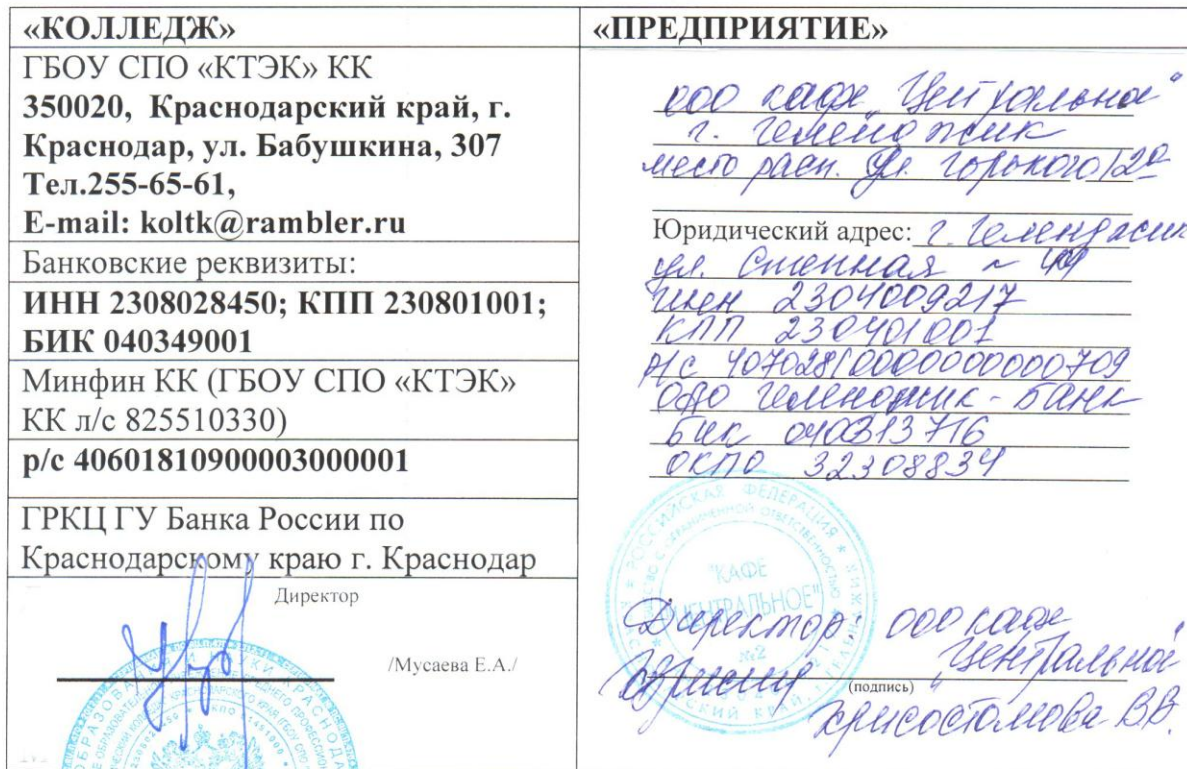 «КОЛЛЕДЖ»
ГБОУ СПО «КТЭК» КК
350020, Краснодарский край, г.
Краснодар, ул. Бабушкина, 307
Тел.255-65-61,
E-mail: koltk@rambler.ru
Банковские реквизиты:
ИНН 2308028450; КПП 230801001;
БИК 040349001
Минфин КК (ГБОУ СПО «КТЭК»
КК л/с 825510330)
р/с 40601810900003000001
ГРКЦ ГУ Банка России по
Краснодарскому краю г. Краснодар
Директор
/Мусаева Е.А./
«ПРЕДПРИЯТИЕ»
ООО кафе „Центральное"
г. Геленджик
место расп. ул. Горького 12а
Юридический адрес: г. Геленджик
ул. Степная
ИНН 2304009217
КПП 230401001
р/с 40702810000000000709
ОАО Геленджик-Банк
БИК 040313716
ОКПО 32308834
РОССИЙСКАЯ ФЕДЕРАЦИЯ
"КАФЕ
ЦЕНТРАЛЬНОЕ"
№2
Директор: ООО кафе
„Центральное"
(подпись)
Хрисостомова В.В.